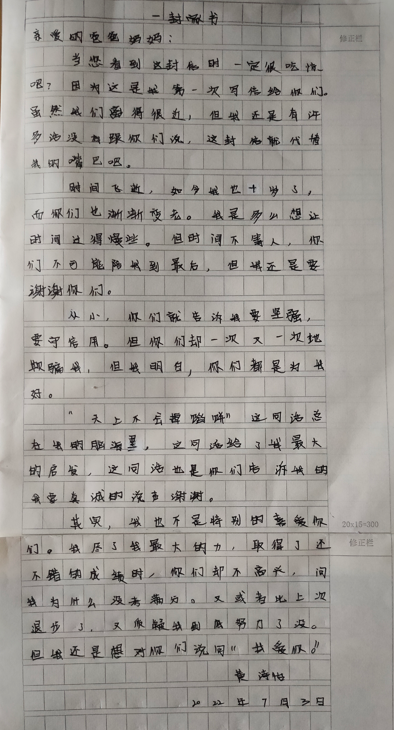 一封家书
亲爱的爸爸妈妈：
当您看到这封信时一定很吃惊
吧？因为这是我第一次写信给你们。
虽然我们离得很近，但我还是有许
多话没有跟你们说，这封信能代替
我的嘴巴吧。
时间飞逝，如今我也十岁了，
而你们也渐渐变老。我是多么想让
时间过得慢些。但时间不等人，你
们不可能陪我到最后，但我还是要
谢谢你们。
从小，你们就告诉我要坚强，
要守信用。但你们却一次又一次地
欺骗我，但我明白，你们都是为我
好。
"天上不会掉馅饼"这句话总
在我的脑海里，这句话给了我最大
的启发，这句话也是你们告诉我的
我要真诚的说声谢谢。
其实，我也不是特别的喜爱你
们。我尽了我最大的力，取得了还
不错的成绩时，你们却不高兴，问
我为什么没考满分。又或者比上次
退步了，又质疑我到底努力了没。
但我还是想对你们说句"我爱你！"
黄
2022年7月3日
修正栏
20×15=300
修正栏